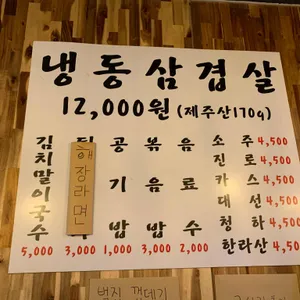 냉동삼겹살
12,000원 (제주산170g)
김치말이국수 5,000
해장라면 3,000
공기밥 1,000
볶음밥 3,000
음료수 2,000
소주 4,500
진로 4,500
카스 4,500
대선 4,500
청하 4,500
한라산 4,500
껍데기